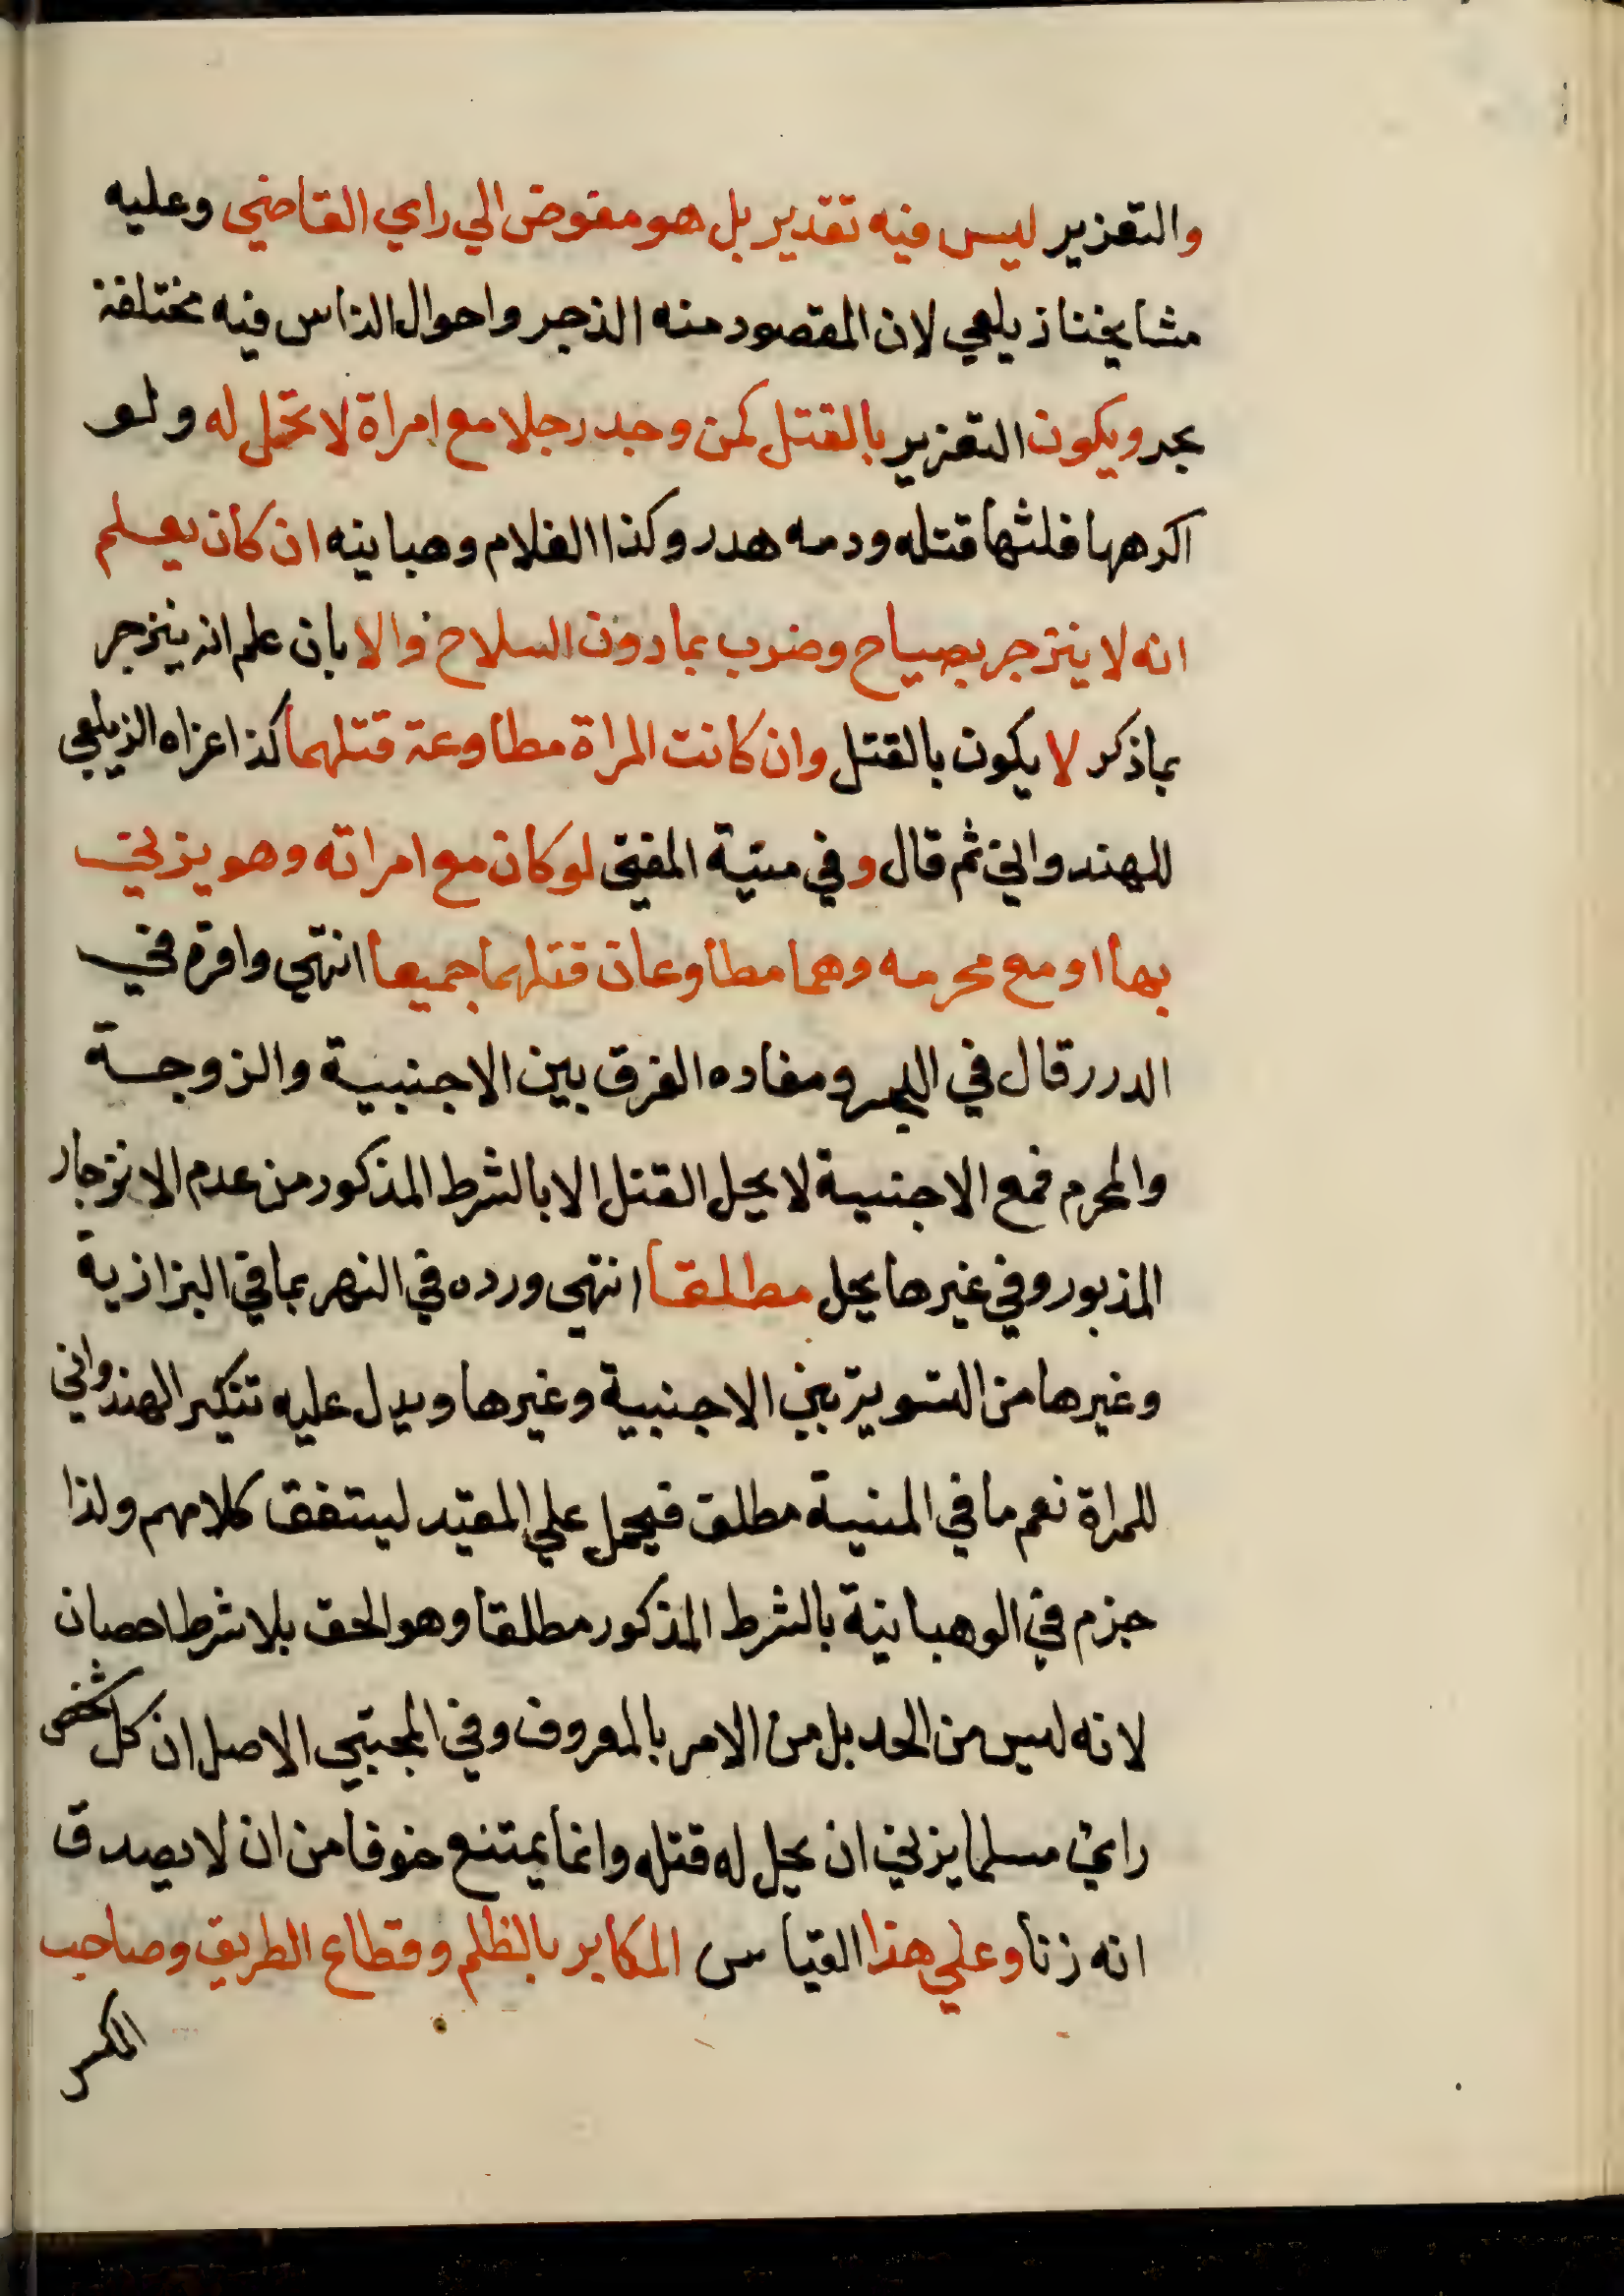 والتعزير ليس فيه تقدير بل هو مفوض الي راي القاضي وعليه
مشايخنا زيلعي لان المقصود منه الزجر واحوال الناس فيه مختلفة
بحر ويكون التعزير بالقتل كمن وجد رجلا مع امراة لا تحل له ولو
اكرهها فلها قتله ودمه هدر وكذا الغلام وهبانيه ان كان يعلم
انه لا ينزجر بصياح وضرب بما دون السلاح والا بان علم انه ينزجر
بما ذكر لا يكون بالقتل وان كانت المراة مطاوعة قتلهما كذا عزاه الزيلعي
للهندواني ثم قال وفي منية المفتي لو كان مع امراته وهو يزني
بها او مع محرمه وهما مطاوعان قتلهما جميعا انتهي واقره في
الدرر قال في البحر ومفاده الفرق بين الاجنبية والزوجة
والمحرم فمع الاجنبية لا يحل القتل الا بالشرط المذكور من عدم الانزجار
المذبور وفي غيرها يحل مطلقا انتهي ورده في النهر بما في البزازية
وغيرها من التسوية بين الاجنبية وغيرها ويدل عليه تنكير الهندواني
للمراة نعم ما في المنية مطلق فيحمل علي المقيد ليتفق كلامهم ولذا
جزم في الوهبانية بالشرط المذكور مطلقا وهو الحق بلا شرط احصان
لانه ليس من الحد بل من الامر بالمعروف وفي المجتبي الاصل ان كل شخص
راي مسلما يزني ان يحل له قتله وانما يمتنع خوفا من ان لا يصدق
انه زنا وعلي هذا القياس المكابر بالظلم وقطاع الطريق وصاحب
المكس